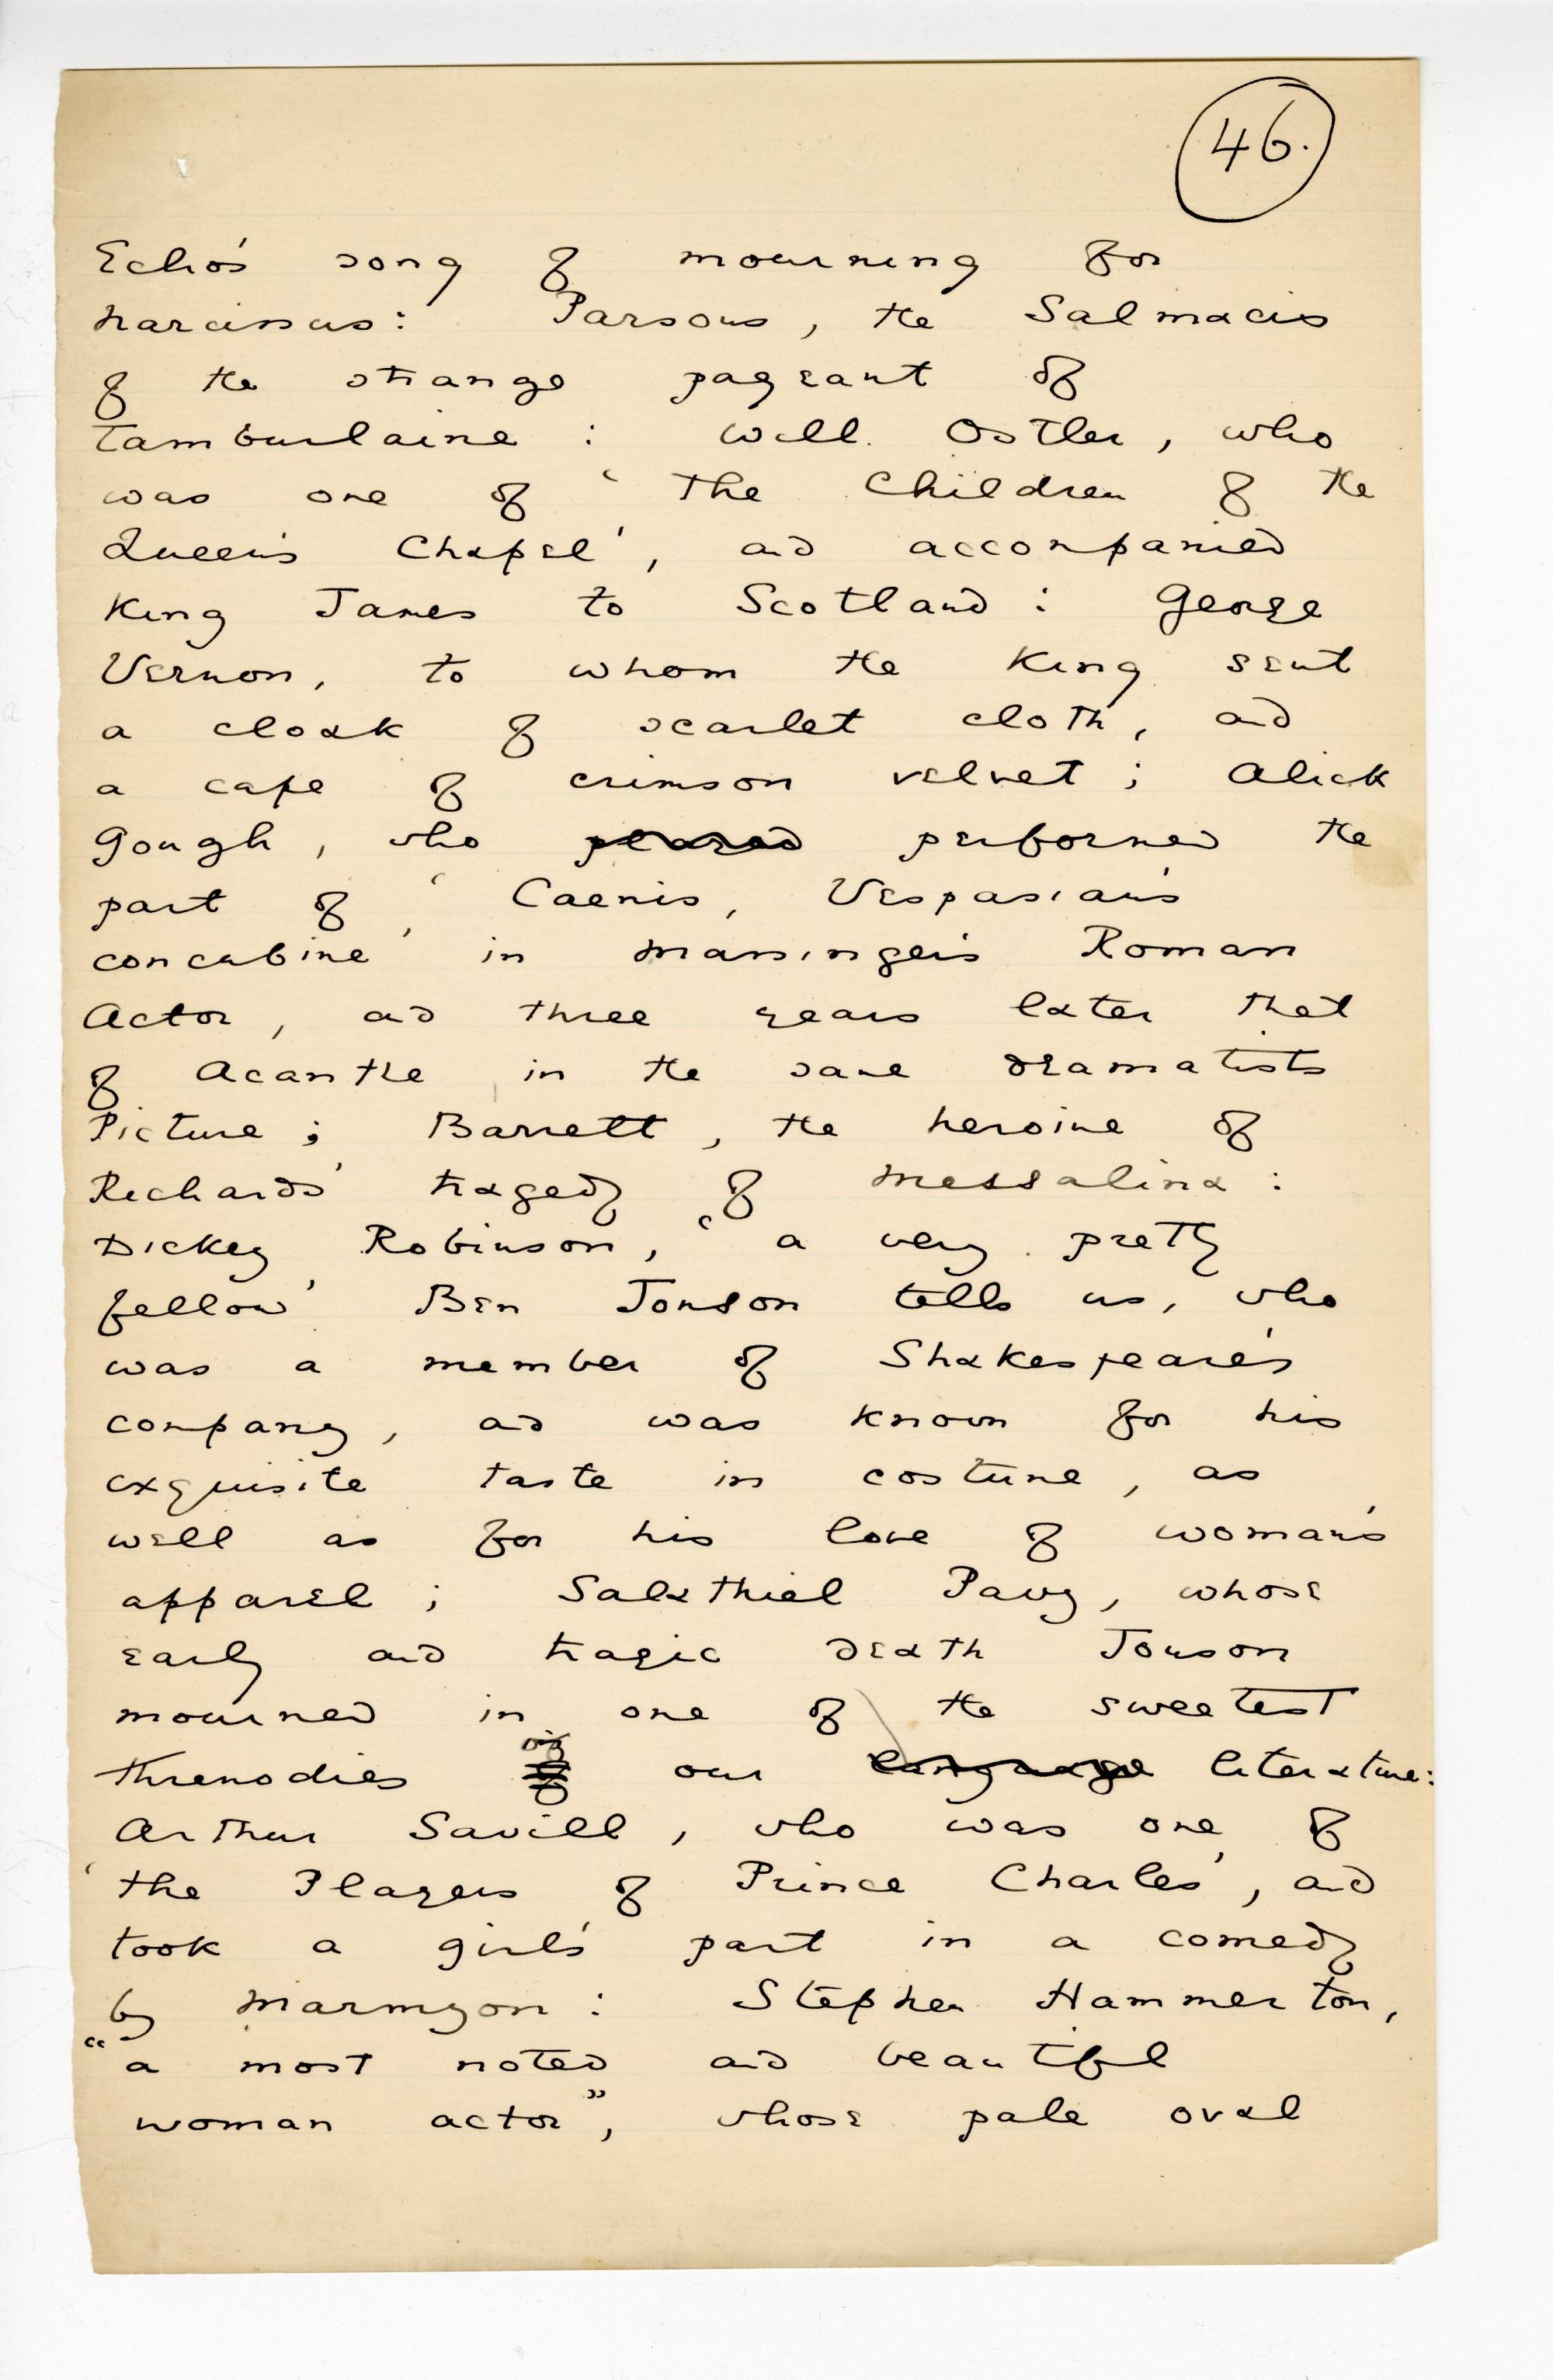 46.
Echo's song of mourning for
Narcissus: Parsons, the Salmacis
of the strange pageant of
Tamburlaine: Will. Ostler, who
was one of 'The Children of the
Queen's Chapel', and accompanied
King James to Scotland: George
Vernon, to whom the King sent
a cloak of scarlet cloth, and
a cape of crimson velvet; Alick
Gough, who played performed the
part of 'Caenis, Vespasian's
concubine' in Massinger's Roman
Actor, and three years later that
of Acanthe in the same dramatist's
Picture; Barrett, the heroine of
Richards' tragedy of Messalina:
Dickey Robinson, 'a very pretty
fellow' Ben Jonson tells us, who
was a member of Shakespeare's
company, and was known for his
exquisite taste in costume, as
well as for his love of woman's
apparel; Salathiel Pavy, whose
early and tragic death Jonson
mourned in one of the sweetest
threnodies of our language literature:
Arthur Savill, who was one of
'the Players of Prince Charles', and
took a girl's part in a comedy
by Marmyon: Stephen Hammerton,
"a most noted and beautiful
woman actor", whose pale oval